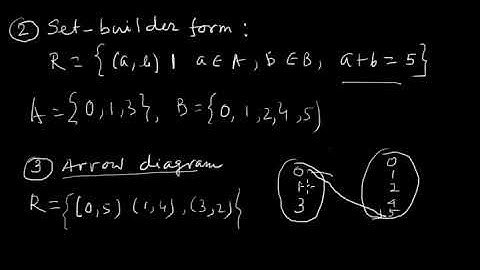 ② Set-builder form :
R = { (a, b) | a ∈ A, b ∈ B, a+b = 5}
A = {0, 1, 3}, B = {0, 1, 2, 4, 5)
③ Arrow diagram
R = {(0, 5) (1, 4), (3, 2)}
0
1
3
0
1
2
4
5